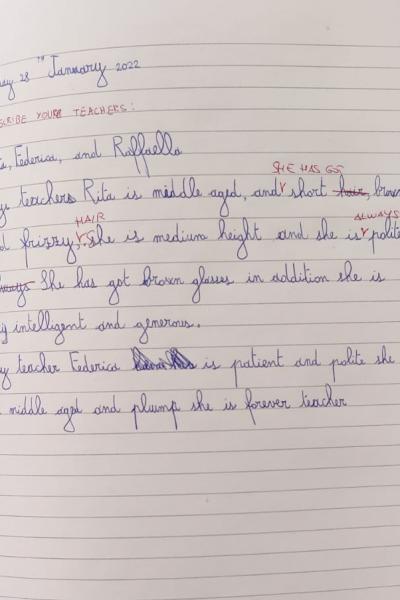 28th January 2022
DESCRIBE YOUR TEACHERS:
Federica, and Raffaella
SHE HAS GOT
teachers Rita is middle aged, and short hair, brown
HAIR ALWAYS
frizzy, she is medium height and she is polite
always She has got brown glasses in addition she is
intelligent and generous.
teacher Federica is patient and polite she
middle aged and plump she is forever teacher